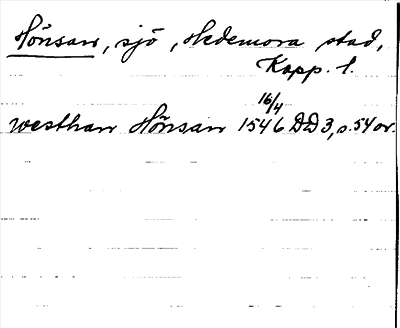 Hönsan, sjö, Hedemora stad,
Kopp. l.
16/4
westhan Hönsan 1546 DD 3, s. 54 or.